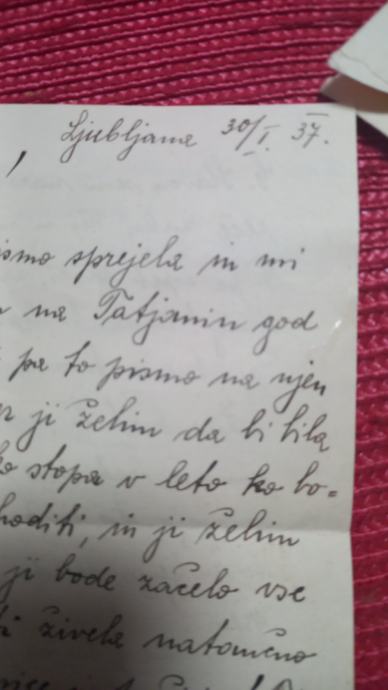 Ljubljana 30/I. 37.
,
ismo sprejela in mi
na Tatjanin god
pa to pismo na njen
er ji želim da bi bila
ko stopa v leto ko bo=
hoditi, in ji želim
ji bode začelo vse
ti živela natančno